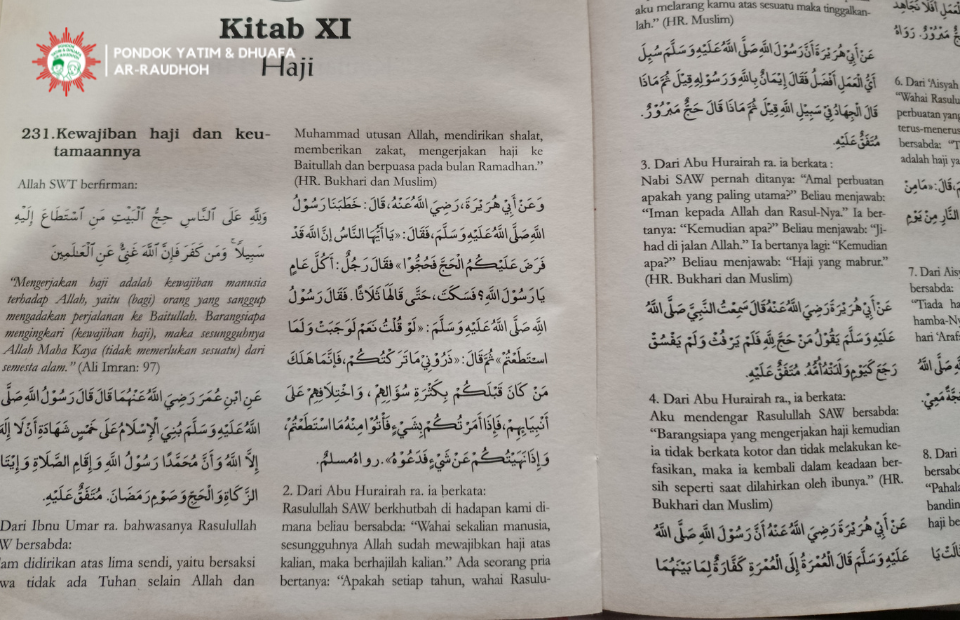 PONDOK YATIM & DHUAFA
AR-RAUDHOH
Kitab XI
Haji
231.Kewajiban haji dan keu-
tamaannya
Allah SWT berfirman:
وَلِلَّهِ عَلَى ٱلنَّاسِ حِجُّ ٱلْبَيْتِ مَنِ ٱسْتَطَاعَ إِلَيْهِ
سَبِيلًا ۚ وَمَن كَفَرَ فَإِنَّ ٱللَّهَ غَنِىٌّ عَنِ ٱلْعَٰلَمِينَ
"Mengerjakan haji adalah kewajiban manusia
terhadap Allah, yaitu (bagi) orang yang sanggup
mengadakan perjalanan ke Baitullah. Barangsiapa
mengingkari (kewajiban haji), maka sesungguhnya
Allah Maha Kaya (tidak memerlukan sesuatu) dari
semesta alam." (Ali Imran: 97)
عَنِ ابْنِ عُمَرَ رَضِيَ اللهُ عَنْهُمَا قَالَ قَالَ رَسُوْلُ اللهِ صَلَّى
اللهُ عَلَيْهِ وَسَلَّمَ بُنِيَ الْإِسْلَامُ عَلَى خَمْسٍ شَهَادَةِ أَنْ لَا إِلَهَ
إِلَّا اللهُ وَأَنَّ مُحَمَّدًا رَسُوْلُ اللهِ وَإِقَامِ الصَّلَاةِ وَإِيْتَا
الزَّكَاةِ وَالْحَجِّ وَصَوْمِ رَمَضَانَ. مُتَّفَقٌ عَلَيْهِ.
Dari Ibnu Umar ra. bahwasanya Rasulullah
W bersabda:
am didirikan atas lima sendi, yaitu bersaksi
wa tidak ada Tuhan selain Allah dan
Muhammad utusan Allah, mendirikan shalat,
memberikan zakat, mengerjakan haji ke
Baitullah dan berpuasa pada bulan Ramadhan."
(HR. Bukhari dan Muslim)
وَعَنْ أَبِي هُرَيْرَةَ، رَضِيَ اللهُ عَنْهُ، قَالَ: خَطَبَنَا رَسُوْلُ
اللهِ صَلَّى اللهُ عَلَيْهِ وَسَلَّمَ، فَقَالَ: «يَا أَيُّهَا النَّاسُ إِنَّ اللهَ قَدْ
فَرَضَ عَلَيْكُمُ الْحَجَّ فَحُجُّوْا» فَقَالَ رَجُلٌ: أَكُلَّ عَامٍ
يَا رَسُوْلَ اللهِ؟ فَسَكَتَ، حَتَّى قَالَهَا ثَلَاثًا. فَقَالَ رَسُوْلُ
اللهِ صَلَّى اللهُ عَلَيْهِ وَسَلَّمَ: «لَوْ قُلْتُ نَعَمْ لَوَجَبَتْ وَلَمَا
اسْتَطَعْتُمْ» ثُمَّ قَالَ: «ذَرُوْنِيْ مَا تَرَكْتُكُمْ، فَإِنَّمَا هَلَكَ
مَنْ كَانَ قَبْلَكُمْ بِكَثْرَةِ سُؤَالِهِمْ، وَاخْتِلَافِهِمْ عَلَى
أَنْبِيَائِهِمْ، فَإِذَا أَمَرْتُكُمْ بِشَيْءٍ فَأْتُوْا مِنْهُ مَا اسْتَطَعْتُمْ،
وَإِذَا نَهَيْتُكُمْ عَنْ شَيْءٍ فَدَعُوْهُ». رواه مسلم.
2. Dari Abu Hurairah ra. ia berkata:
Rasulullah SAW berkhutbah di hadapan kami di-
mana beliau bersabda: "Wahai sekalian manusia,
sesungguhnya Allah sudah mewajibkan haji atas
kalian, maka berhajilah kalian." Ada seorang pria
bertanya: "Apakah setiap tahun, wahai Rasulu-
aku melarang kamu atas sesuatu maka tinggalkan-
lah." (HR. Muslim)
عَنْ أَبِي هُرَيْرَةَ أَنَّ رَسُوْلَ اللهِ صَلَّى اللهُ عَلَيْهِ وَسَلَّمَ سُئِلَ
أَيُّ الْعَمَلِ أَفْضَلُ فَقَالَ إِيْمَانٌ بِاللهِ وَرَسُوْلِهِ قِيْلَ ثُمَّ مَاذَا
قَالَ الْجِهَادُ فِيْ سَبِيْلِ اللهِ قِيْلَ ثُمَّ مَاذَا قَالَ حَجٌّ مَبْرُوْرٌ.
مُتَّفَقٌ عَلَيْهِ.
3. Dari Abu Hurairah ra. ia berkata :
Nabi SAW pernah ditanya: "Amal perbuatan
apakah yang paling utama?" Beliau menjawab:
"Iman kepada Allah dan Rasul-Nya." Ia ber-
tanya: "Kemudian apa?" Beliau menjawab: "Ji-
had di jalan Allah." Ia bertanya lagi: "Kemudian
apa?" Beliau menjawab: "Haji yang mabrur."
(HR. Bukhari dan Muslim)
عَنْ أَبِي هُرَيْرَةَ رَضِيَ اللهُ عَنْهُ قَالَ سَمِعْتُ النَّبِيَّ صَلَّى اللهُ
عَلَيْهِ وَسَلَّمَ يَقُوْلُ مَنْ حَجَّ لِلّٰهِ فَلَمْ يَرْفُثْ وَلَمْ يَفْسُقْ
رَجَعَ كَيَوْمِ وَلَدَتْهُ أُمُّهُ. مُتَّفَقٌ عَلَيْهِ.
4. Dari Abu Hurairah ra., ia berkata:
Aku mendengar Rasulullah SAW bersabda:
"Barangsiapa yang mengerjakan haji kemudian
ia tidak berkata kotor dan tidak melakukan ke-
fasikan, maka ia kembali dalam keadaan ber-
sih seperti saat dilahirkan oleh ibunya." (HR.
Bukhari dan Muslim)
عَنْ أَبِي هُرَيْرَةَ رَضِيَ اللهُ عَنْهُ أَنَّ رَسُوْلَ اللهِ صَلَّى اللهُ
عَلَيْهِ وَسَلَّمَ قَالَ الْعُمْرَةُ إِلَى الْعُمْرَةِ كَفَّارَةٌ لِمَا بَيْنَهُمَا
الْعَمَلِ أَفَلَا نُجَاهِدُ
مَبْرُوْرٌ. رَوَاهُ
6. Dari 'Aisyah
"Wahai Rasulu
perbuatan yang
terus-menerus
bersabda: "T
adalah haji ya
قَالَ: «مَا مِنْ
النَّارِ مِنْ يَوْمِ
7. Dari Aisy
bersabda:
"Tiada ha
hamba-Ny
hari 'Arafa
صَلَّى اللهُ
حَجَّةً مَعِيْ.
8. Dari
bersabd
"Pahala
bandin
haji be
قَالَتْ يَا